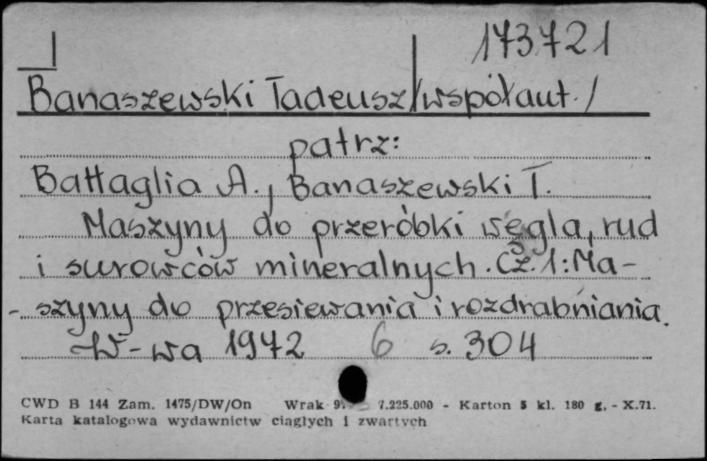 173721
Banaszewski Tadeusz /współaut./
patrz:
Battaglia A., Banaszewski T.
Maszyny do przeróbki węgla, rud
i surowców mineralnych. Cz. 1: Ma-
- szyny do przesiewania i rozdrabniania.
W-wa 1972 6 s. 304
CWD B 144 Zam. 1475/DW/On Wrak 7.225.000 - Karton 5 kl. 180 g. - X.71.
Karta katalogowa wydawnictw ciągłych i zwartych